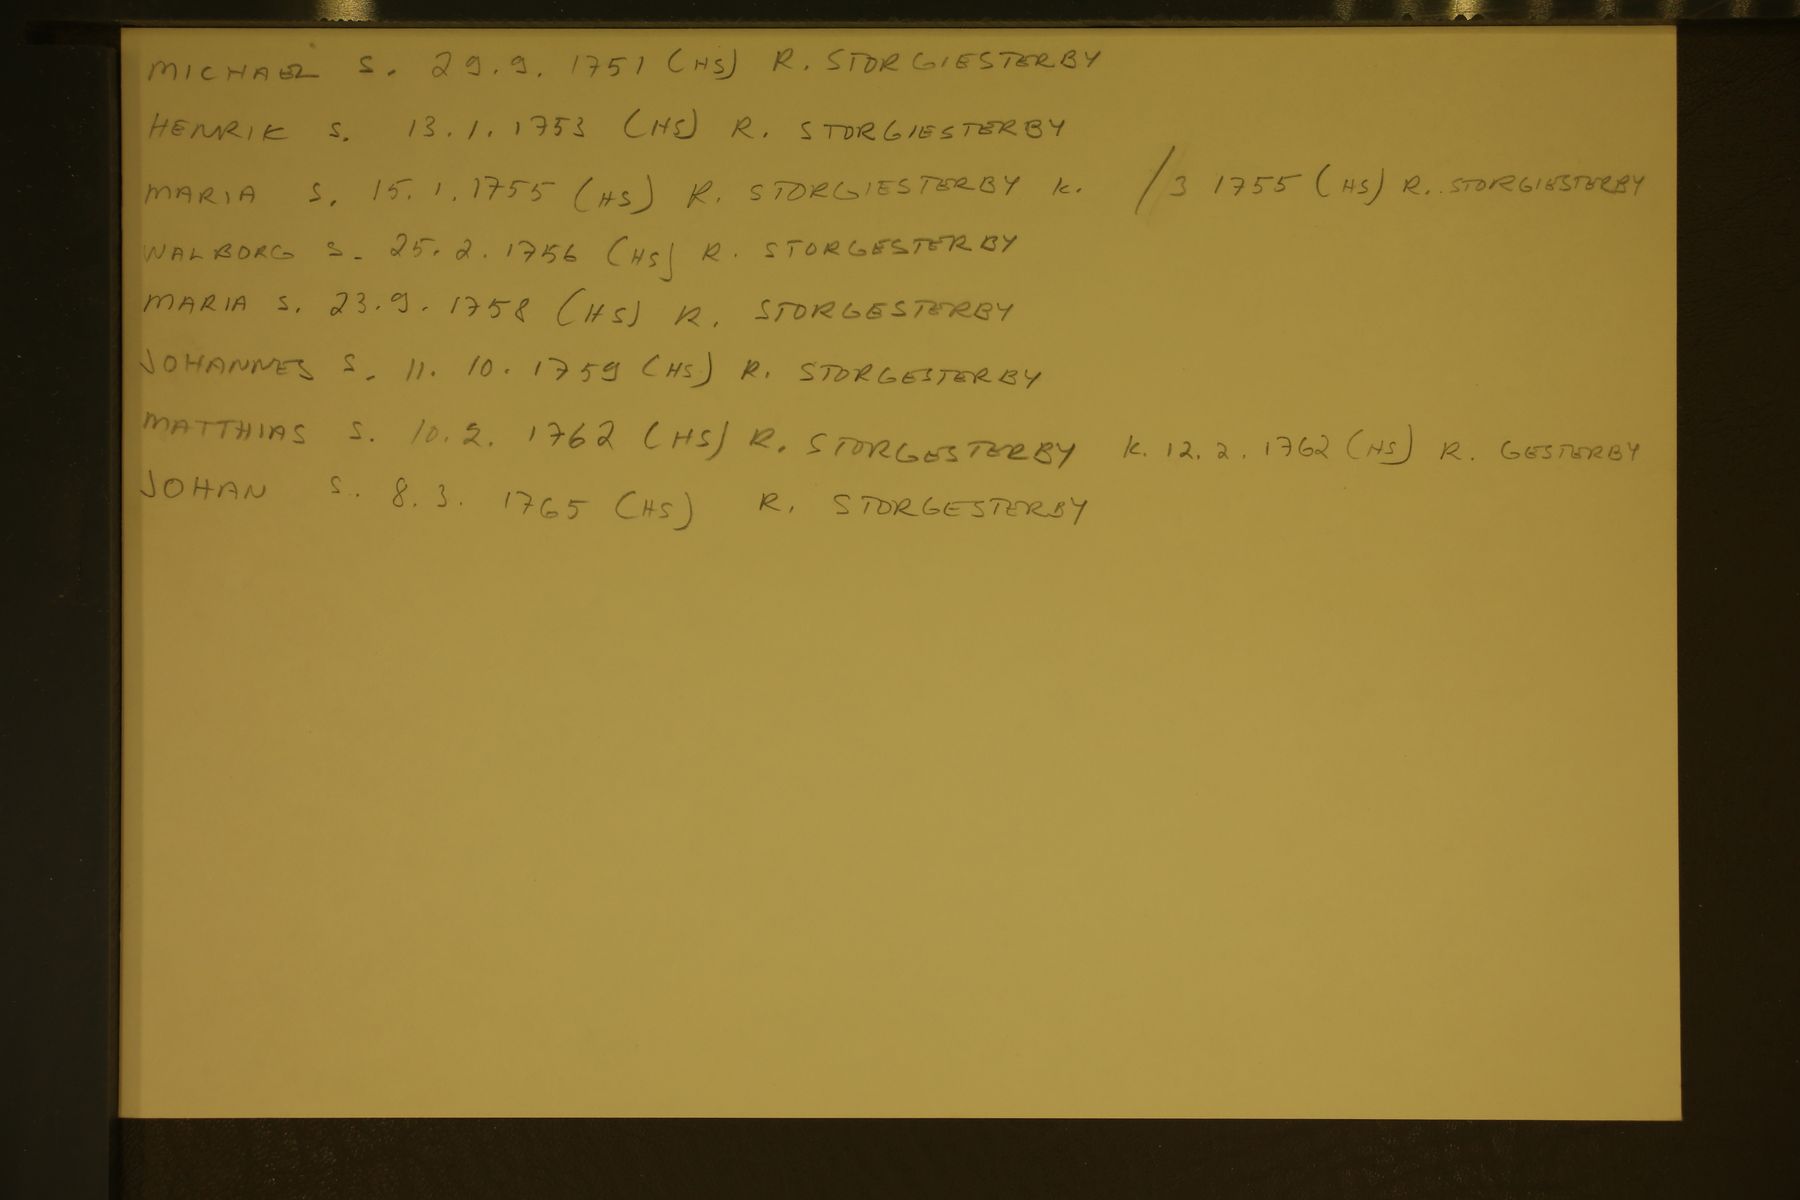 MICHAEL S. 29.9. 1751 (HS) R. STORGIESTERBY
HENRIK S. 13.1.1753 (HS) R. STORGIESTERBY
MARIA S. 15.1.1755 (HS) R. STORGIESTERBY K. /3 1755 (HS) R. STORGIESTERBY
WALBORG S. 25.2.1756 (HS) R. STORGESTERBY
MARIA S. 23.9.1758 (HS) R. STORGESTERBY
JOHANNES S. 11.10.1759 (HS) R. STORGESTERBY
MATTHIAS S. 10.2. 1762 (HS) R. STORGESTERBY K. 12.2.1762 (HS) R. GESTERBY
JOHAN S. 8.3. 1765 (HS) R. STORGESTERBY